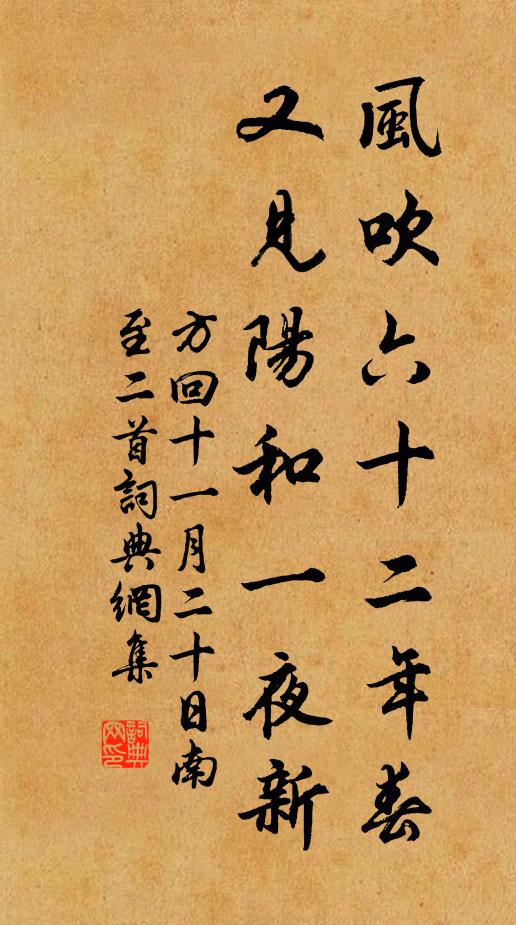 風吹六十二年春
又見陽和一夜新
方回十一月二十日南
至二首詞典網集
詞典网印